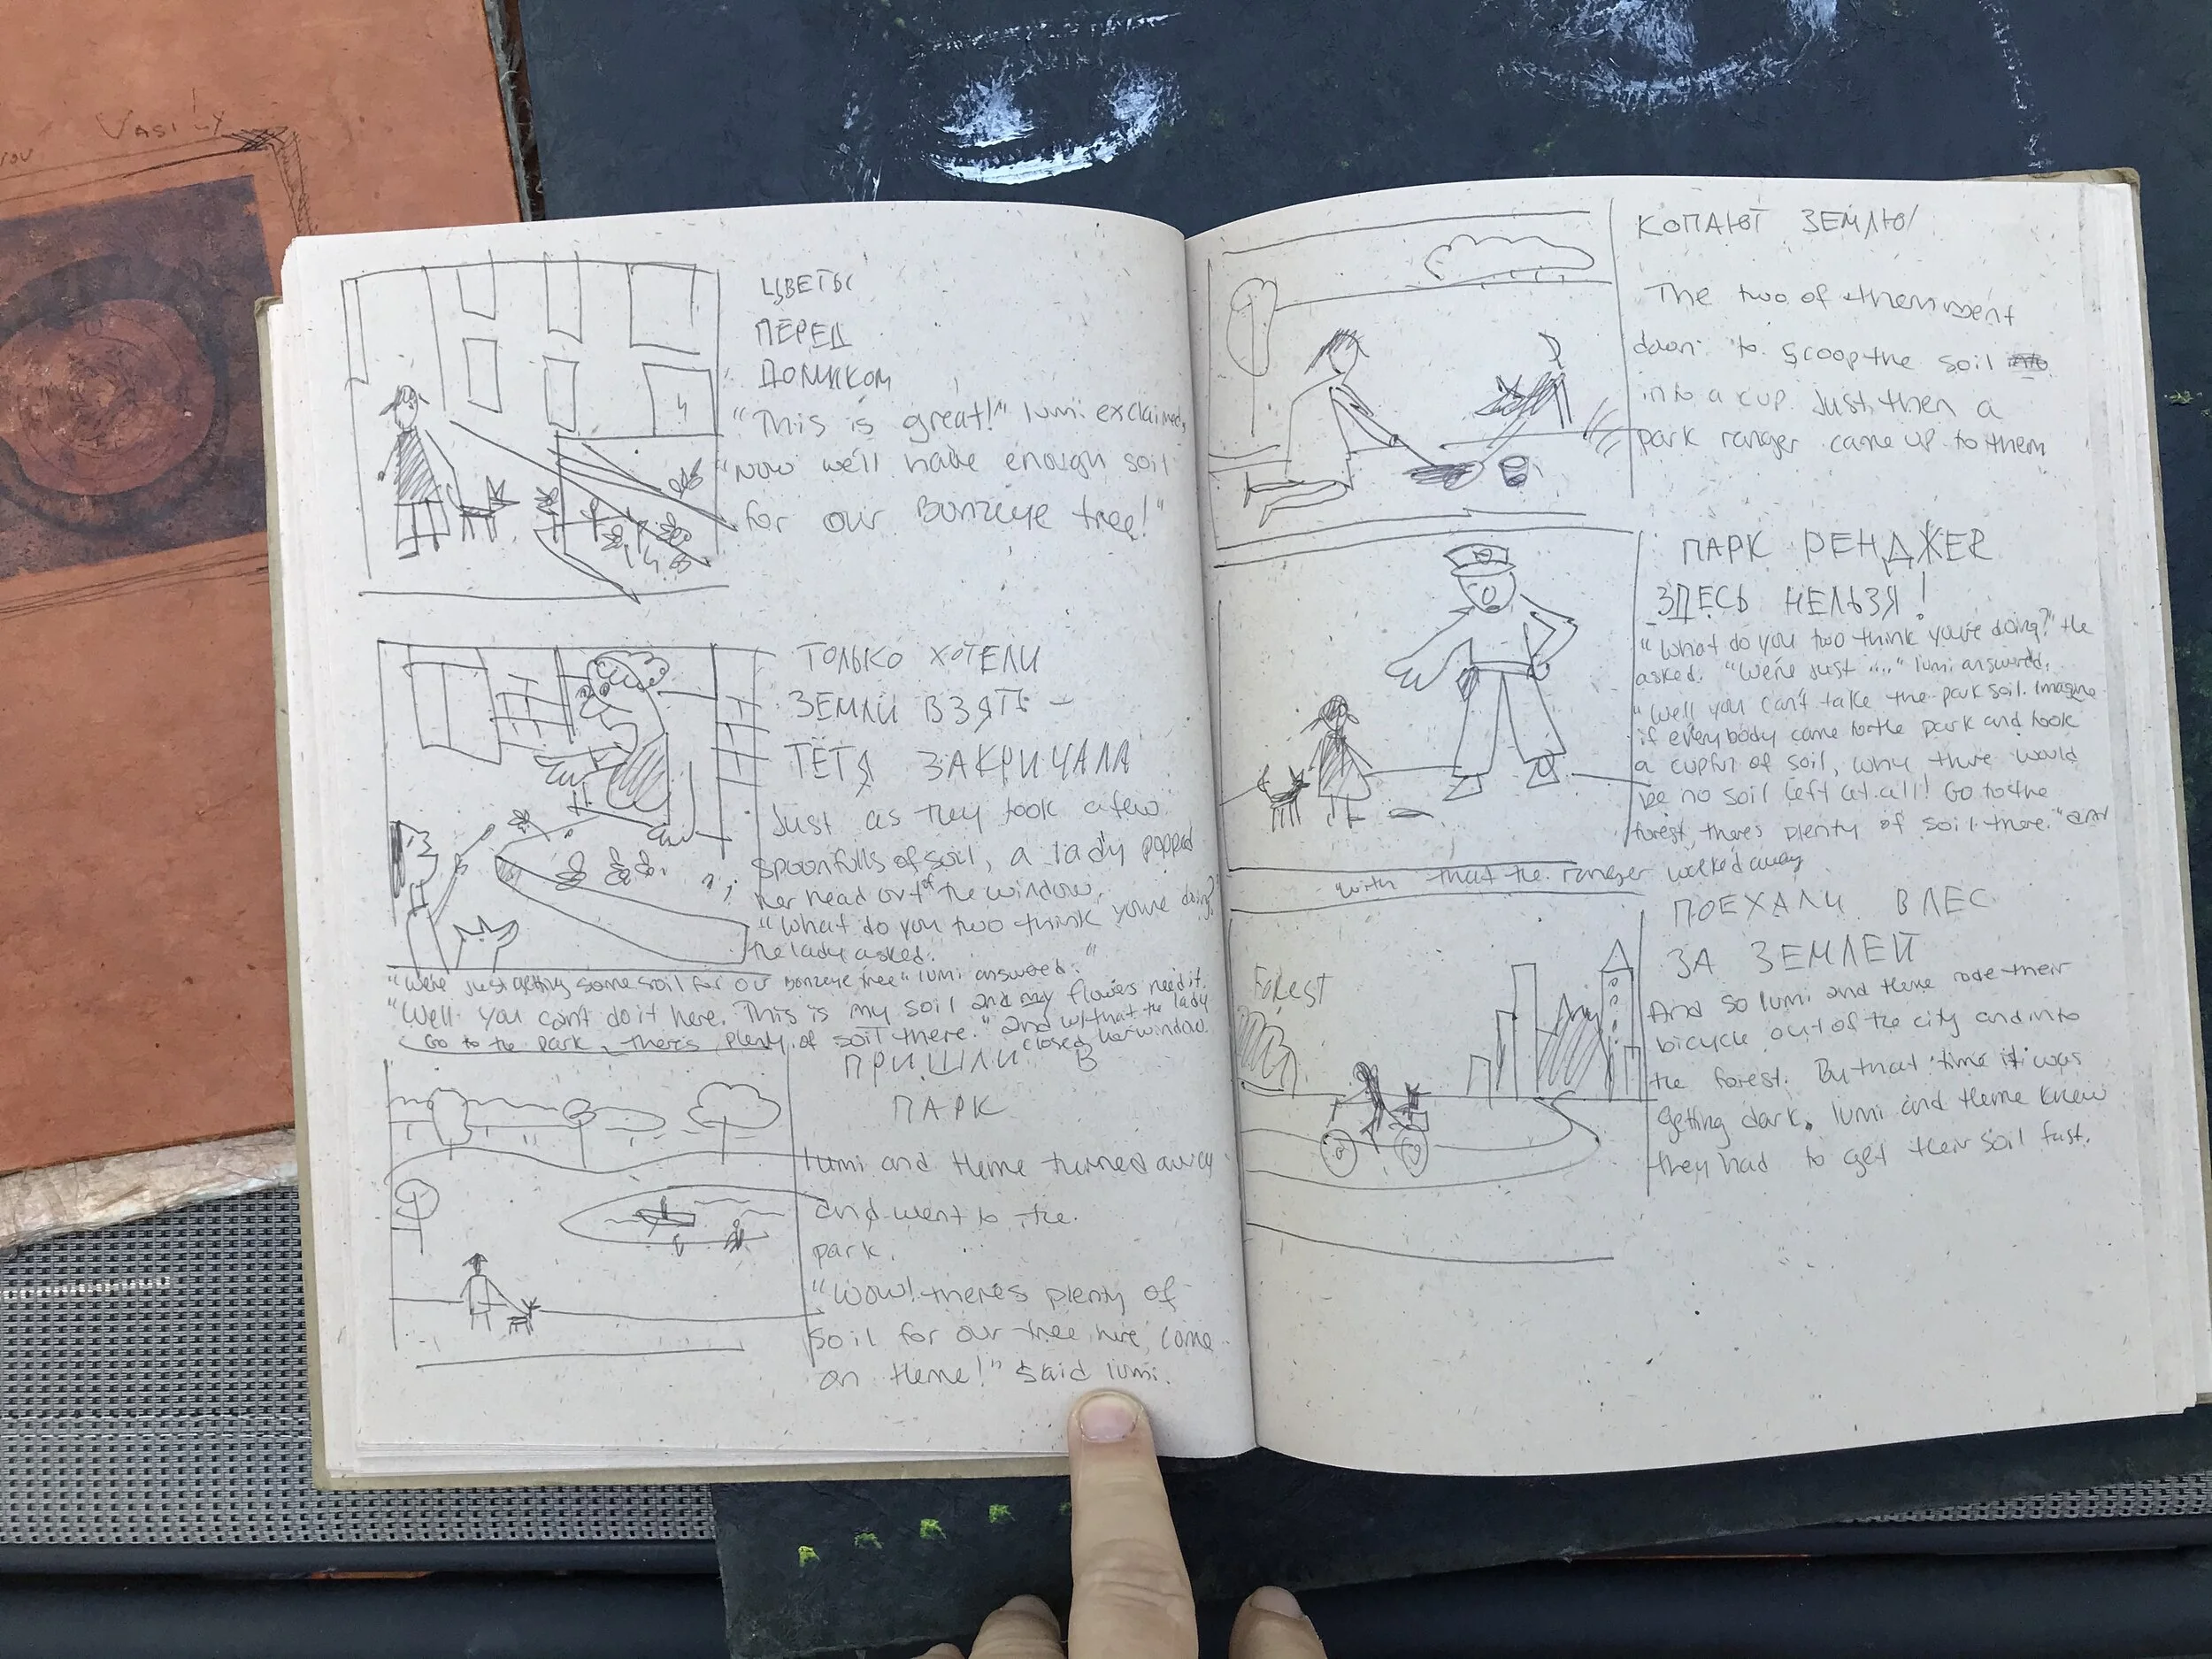 VASILY
ЦВЕТЫ
ПЕРЕД
ДОМИКОМ
"This is great!" lumi exclaimed,
"Now we'll have enough soil
for our Bonzeye tree!"
ТОЛЬКО ХОТЕЛИ
ЗЕМЛИ ВЗЯТЬ –
ТЁТЯ ЗАКРИЧАЛА
Just as they took a few
spoonfulls of soil, a lady popped
her head out of the window.
"What do you two think you're doing?"
the lady asked.
"We're just getting some soil for our Bonzeye tree" lumi answered."
"Well you can't do it here. This is my soil and my flowers need it.
Go to the park, there's plenty of soil there." and with that the lady
closed her window.
ПРИШЛИ В
ПАРК
lumi and theme turned away
and went to the
park.
"Wow! there's plenty of
soil for our tree here, come
on theme!" said lumi.
КОПАЮТ ЗЕМЛЮ!
The two of them went
down to scoop the soil
into a cup. Just then a
park ranger came up to them
ПАРК РЕНДЖЕR
ЗДЕСЬ НЕЛЬЗЯ!
"What do you two think you're doing?" he
asked. "We're just ...." lumi answered.
"Well you can't take the park soil. Imagine
if everybody came to the park and took
a cupful of soil, why there would
be no soil left at all! Go to the
forest, there's plenty of soil there." and
with that the ranger walked away
ПОЕХАЛИ В ЛЕС
ЗА ЗЕМЛЕЙ
Forest
And so lumi and theme rode their
bicycle out of the city and into
the forest. By that time it was
getting dark. lumi and theme knew
they had to get their soil fast.